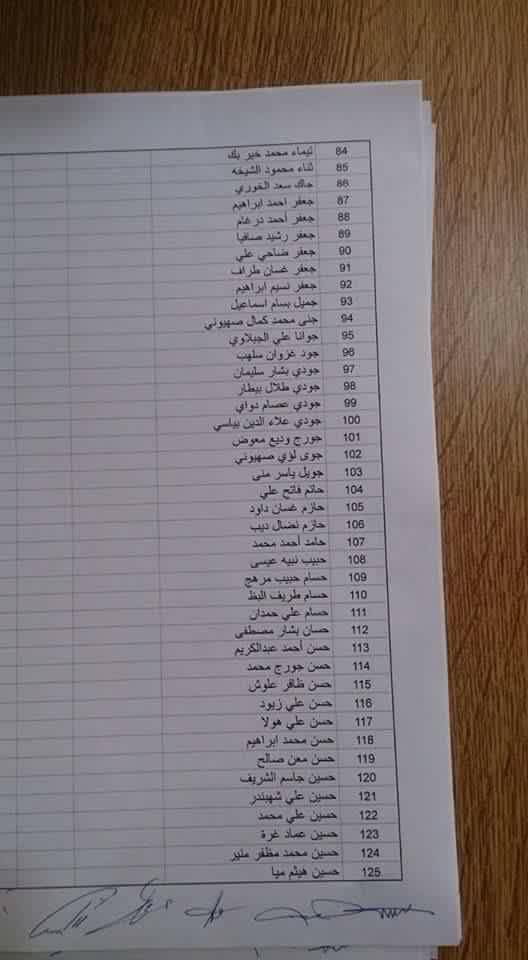 84 تيماء محمد خير بك
85 ثناء محمود الشيخه
86 جاك سعد الخوري
87 جعفر احمد ابراهيم
88 جعفر أحمد درغام
89 جعفر رشيد صافيا
90 جعفر ضاحي علي
91 جعفر غسان طراف
92 جعفر نسيم ابراهيم
93 جميل بسام اسماعيل
94 جنى محمد كمال صهيوني
95 جوانا علي الجبلاوي
96 جود غزوان سلهب
97 جودي بشار سليمان
98 جودي طلال بيطار
99 جودي عصام دواي
100 جودي علاء الدين بياسي
101 جورج وديع معوض
102 جوى لؤي صهيوني
103 جويل ياسر منى
104 حاتم فاتح علي
105 حازم غسان داود
106 حازم نضال ديب
107 حامد أحمد محمد
108 حبيب نبيه عيسى
109 حسام حبيب مرهج
110 حسام طريف البظ
111 حسام علي حمدان
112 حسان بشار مصطفى
113 حسن أحمد عبدالكريم
114 حسن جورج محمد
115 حسن ظافر علوش
116 حسن علي زيود
117 حسن علي هولا
118 حسن محمد ابراهيم
119 حسن معن صالح
120 حسين جاسم الشريف
121 حسين علي شهبندر
122 حسين علي محمد
123 حسين عماد غرة
124 حسين محمد مظفر منير
125 حسين هيثم ميا